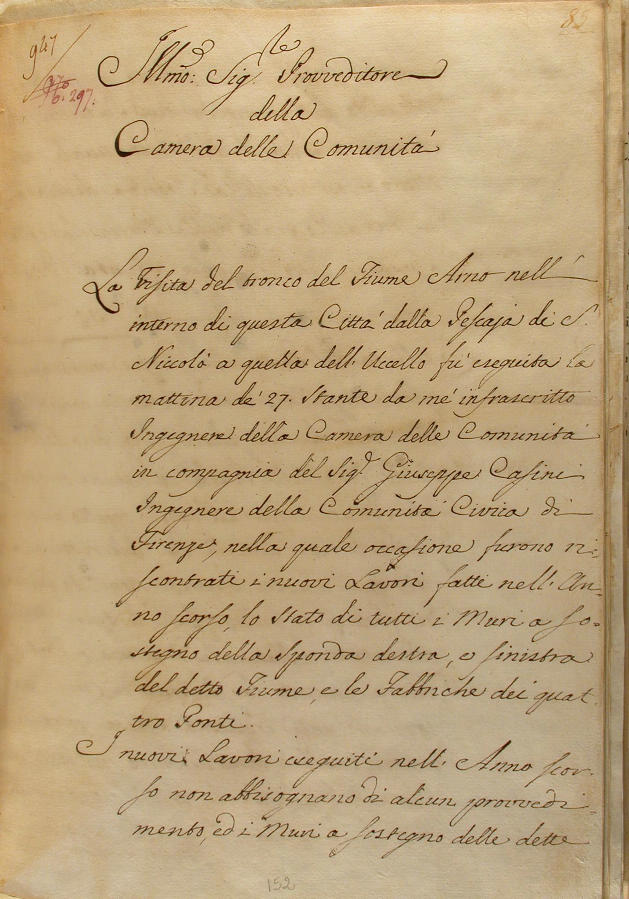 947
85
970
6. 297.
Illmo: Sig.re Provveditore
della
Camera delle Comunitá
La Visita del tronco del Fiume Arno nell'
interno di questa Cittá dalla Pescaja di S.
Niccoló a quella dell' Uccello fú eseguita la
mattina de' 27. Stante da me infrascritto
Ingegnere della Camera delle Comunitá
in compagnia del Sig.r Giuseppe Casini
Ingegnere della Comunitá Civica di
Firenze, nella quale occasione furono ri-
scontrati i nuovi Lavori fatti nell' An-
no scorso, lo stato di tutti i Muri a so-
stegno della sponda destra, e sinistra
del detto Fiume, e le Fabbriche dei quat-
tro Ponti.
I nuovi Lavori eseguiti nell' Anno scor-
so non abbisognano di alcun provvedi-
mento, ed i Muri a sostegno delle dette
152